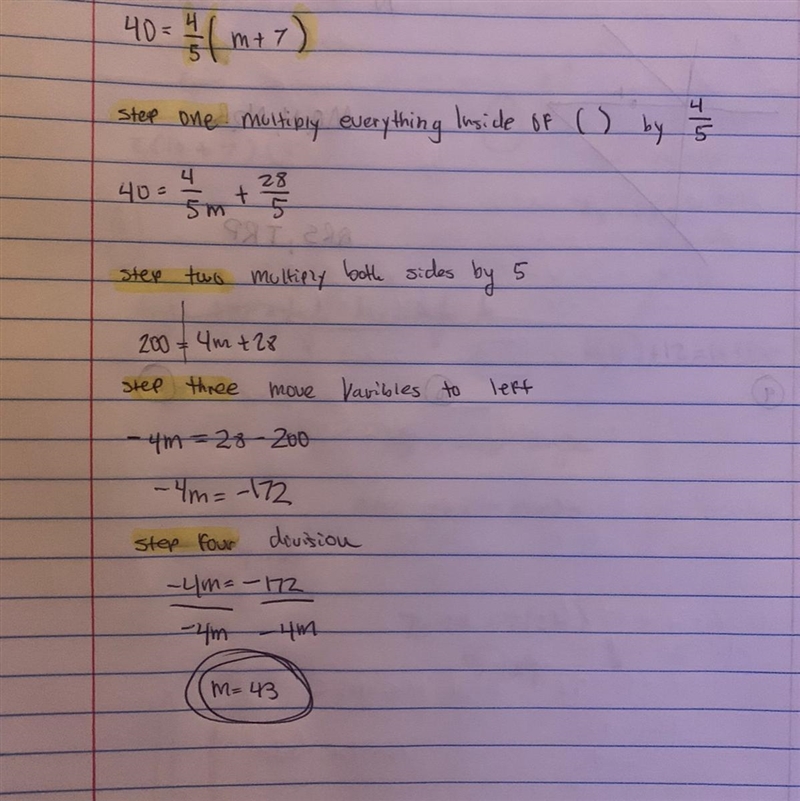 40 = 4/5 ( m + 7 )
Step one multiply everything Inside OF ( ) by 4/5
40 = 4/5m + 28/5
Step two multiply both sides by 5
200 = 4m + 28
Step three move Varibles to left
- 4m = 28 - 200
- 4m = - 172
Step four division
- 4m = - 172
- 4m - 4m
m = 43